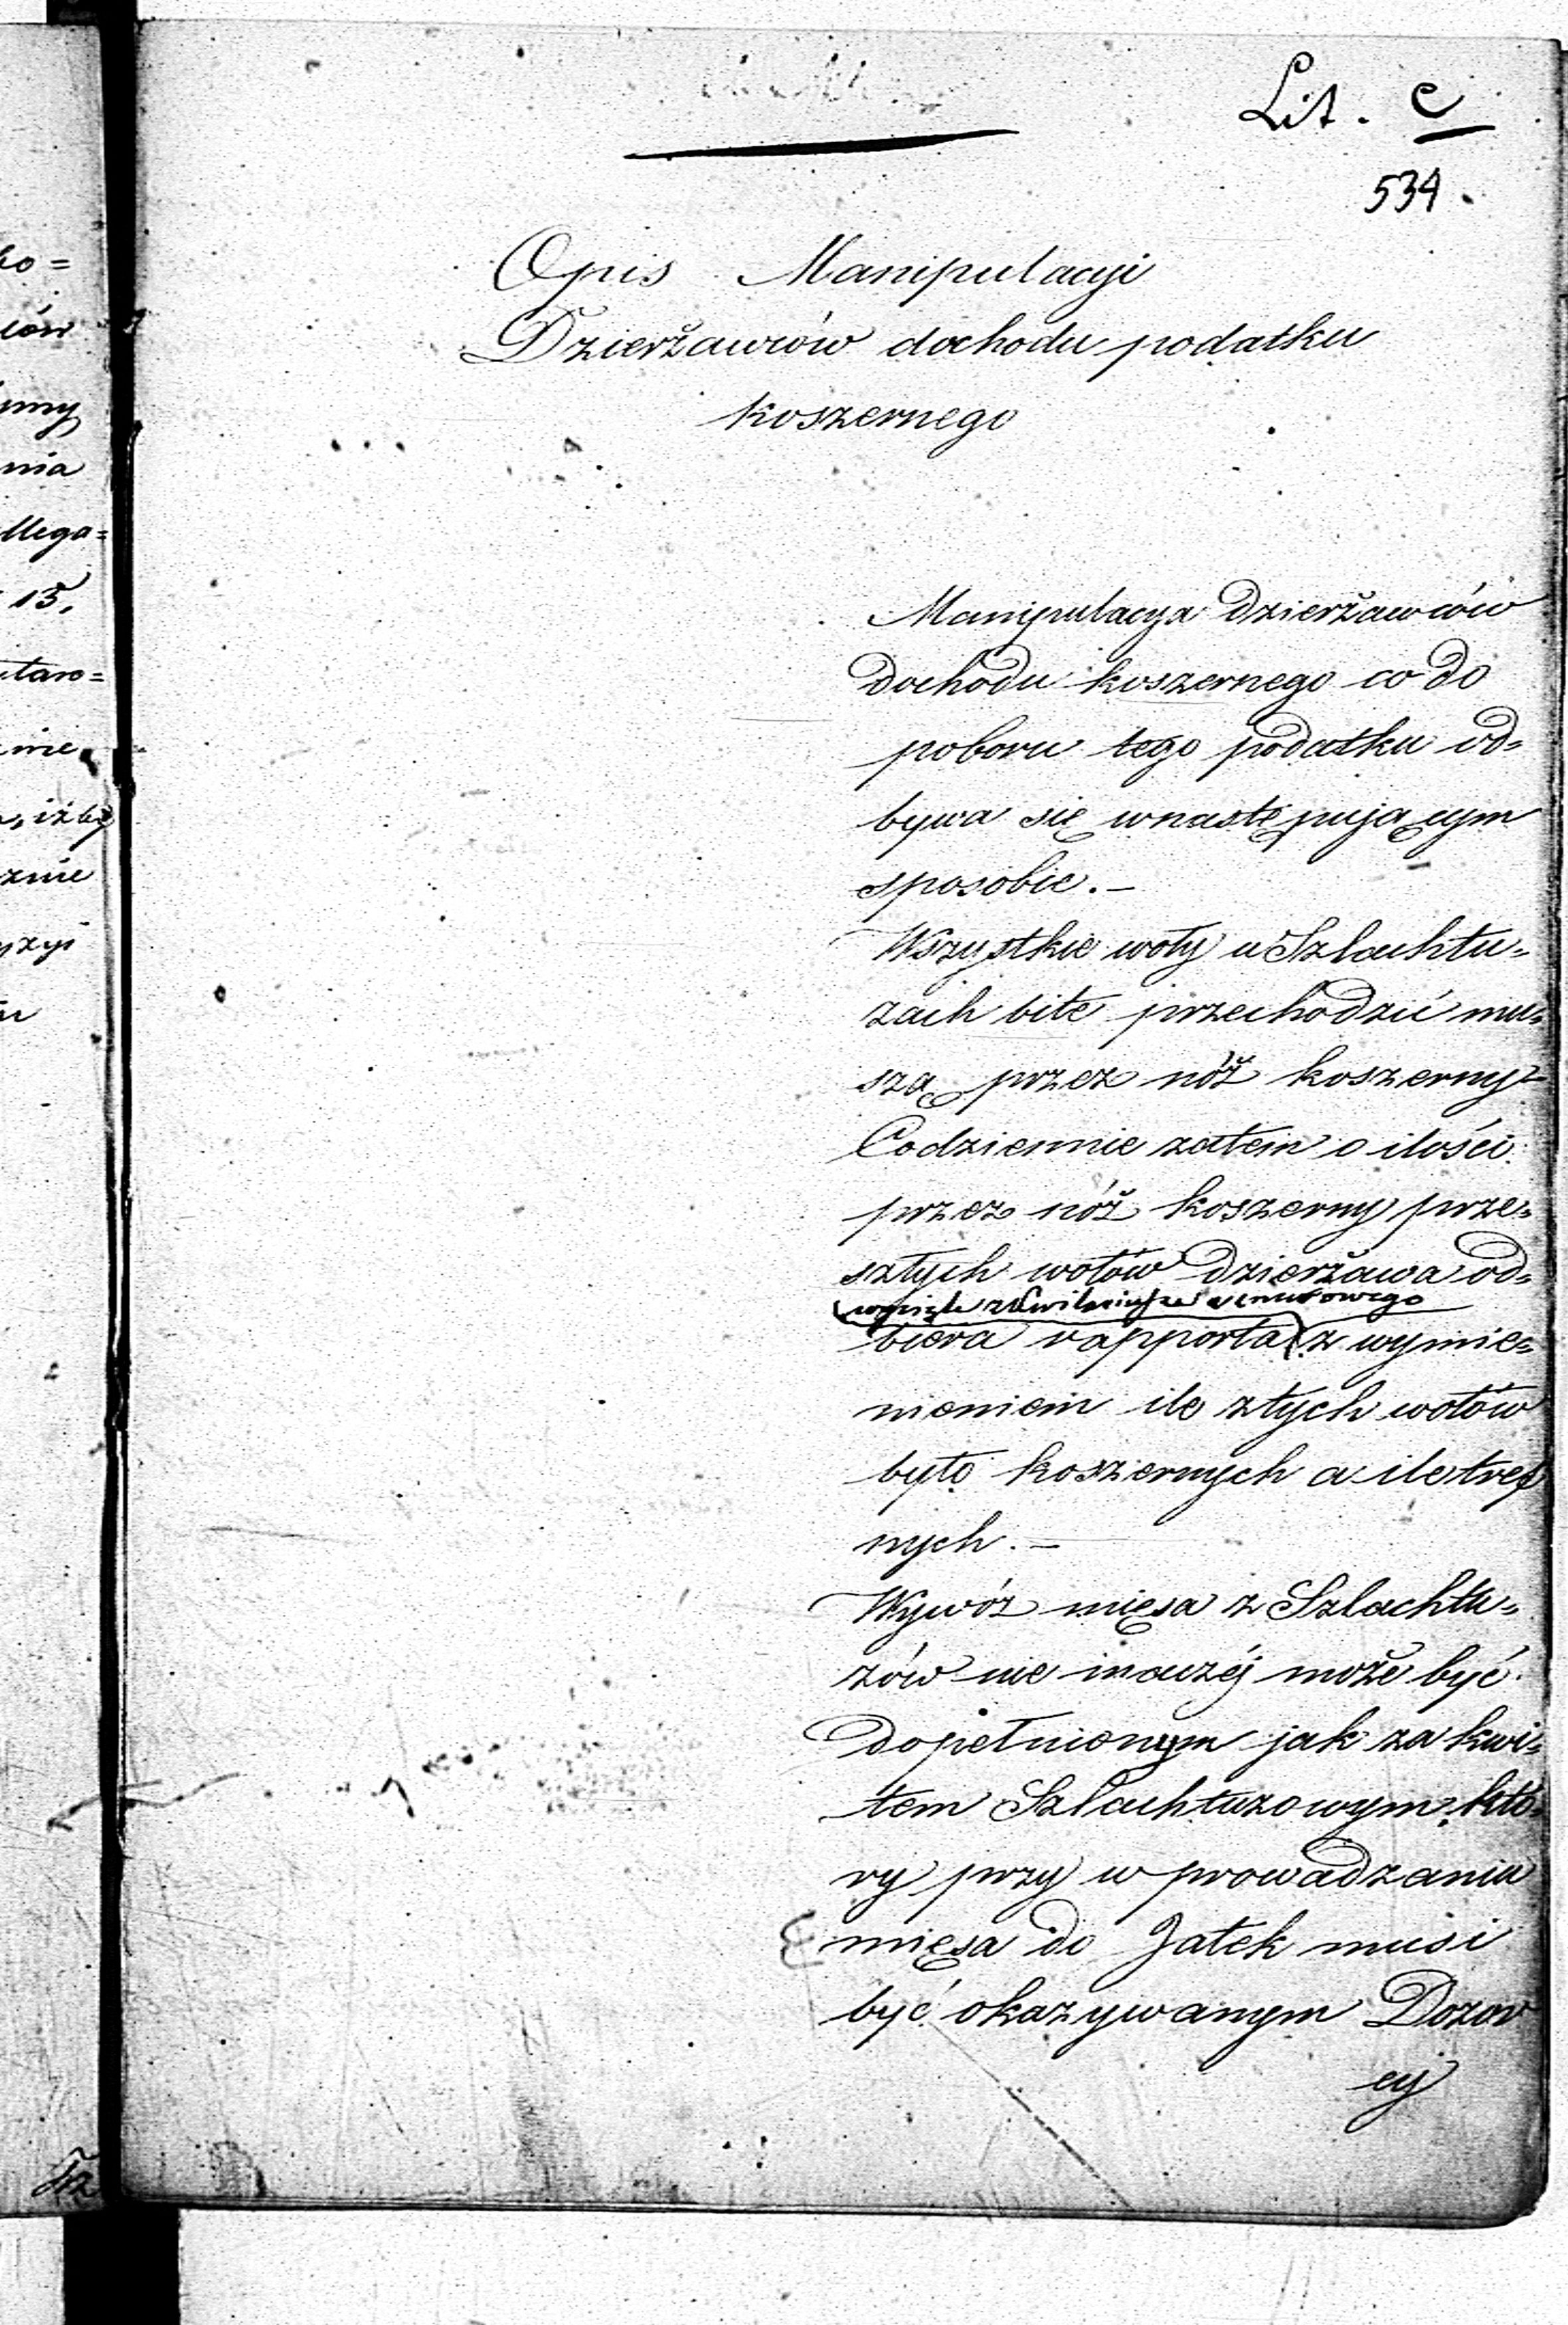 Lit. C
534.
Opis Manipulacyi
Dzierżawców dochodu podatku
koszernego
Manipulacya Dzierżawców
Dochodu koszernego co do
poboru tego podatku od=
bywa się wnastępującym
sposobie. —
Wszystkie woły w Szlachtu=
zach bite przechodzić mu=
szą przez nóż koszerny
Codziennie zatem o ilości
przez nóż koszerny prze=
szłych wołów Dzierżawa od=
biera rapporta z wymie=
nieniem ile ztych wołów
było koszernych a ile tref
nych. —
Wywóz mięsa z Szlachtu=
zów nie inaczéj może być
dopełnionym jak za kwi=
tem Szlachtuzowym, któ=
ry przy wprowadzaniu
mięsa do Jatek musi
być okazywanym Dozor
cy
ko=
ców
nia
llega=
15.
nie
iżby
znie